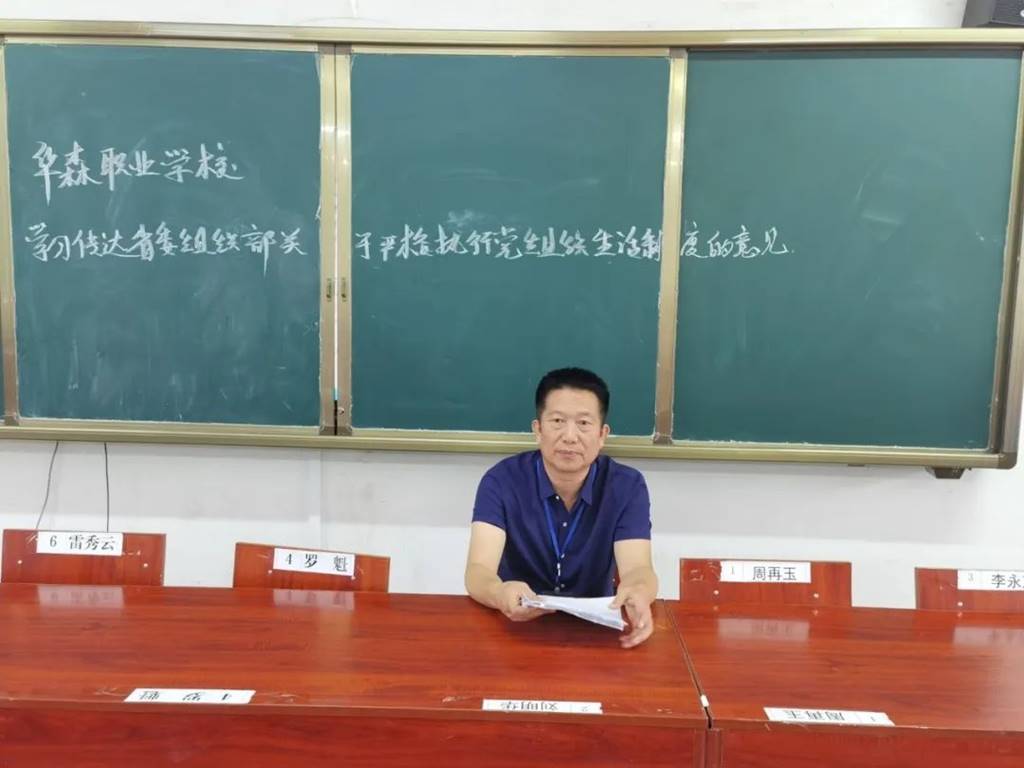 华森职业学校
学习传达省委组织部关于严格执行党组织生活制度的意见
6 雷秀云
4 罗 魁
1 周再玉
3 李永
4 罗 魁
2 刘明华
1 周再玉